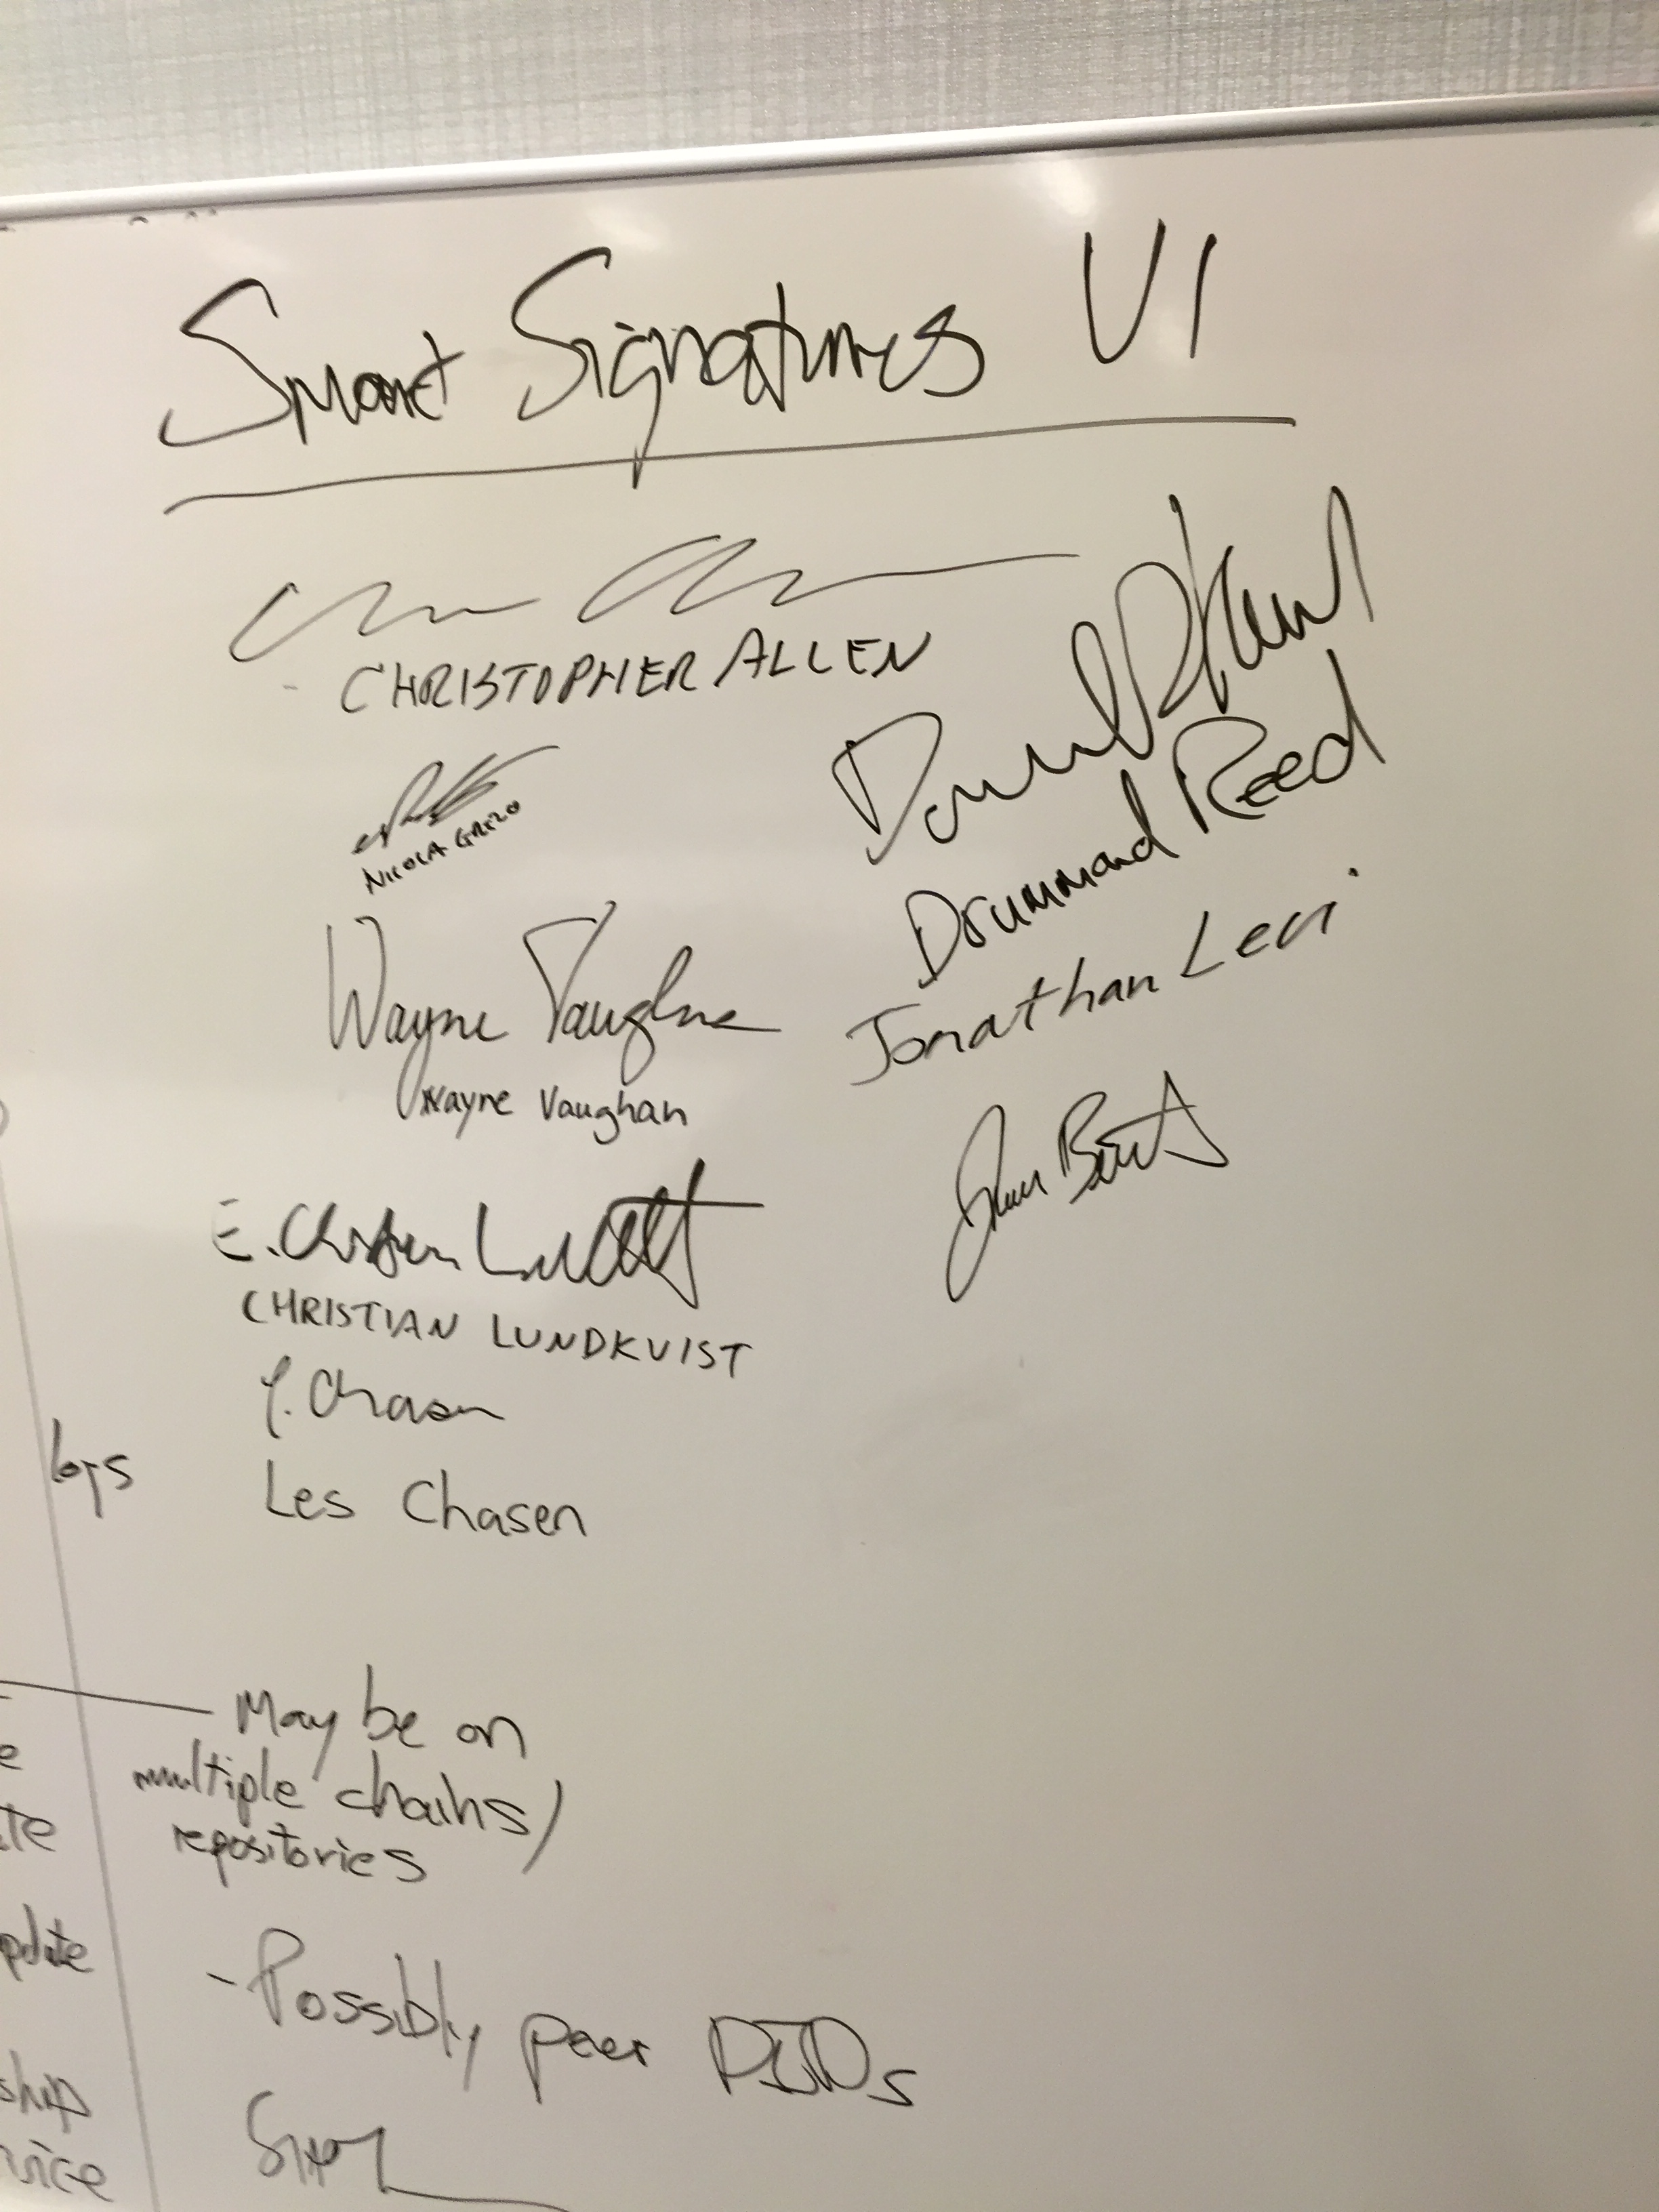 Smart Signatures V1
CHRISTOPHER ALLEN
NICOLA GRECO
Wayne Vaughan
Wayne Vaughan
E. Christian
CHRISTIAN LUNDKVIST
L. Chasen
Les Chasen
Drummond Reed
Jonathan Levi
logs
May be on
multiple chains/
repositories
- Possibly peer DIDs